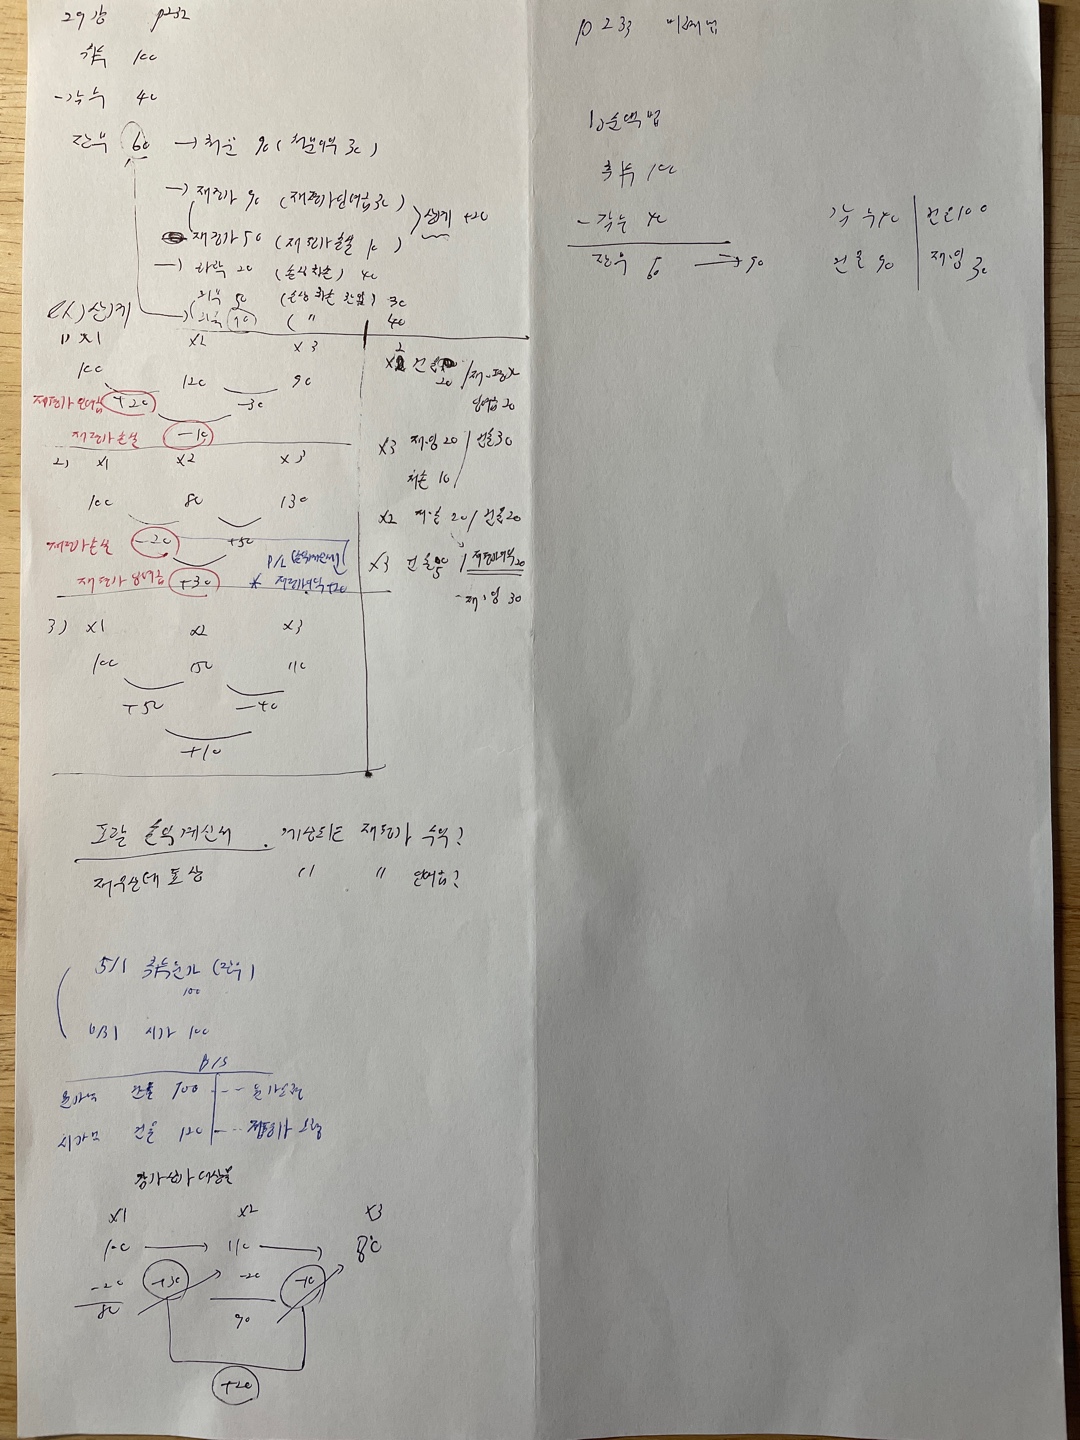 29강 p232
취득 100
-감누 40
잔부 60 → 처분 90 (처분이익 30)
→ 재평가 90 (재평가잉여금 30)
재평가 50 (재평가손실 10) 상계 +20
→ 하락 20 (손상차손) 40
회복 50 (손상차손환입) 30
회복 70 ( " ) 40
예시) 상계
1) x1 x2 x3
100 120 90
재평가잉여금 +20 -30
재평가손실 -10
x2 건물 20 / 재평가잉여금 20
x3 재·잉 20 / 건물 30
재손 10
2) x1 x2 x3
100 80 130
재평가손실 -20 +50
P/L
재평가잉여금 +30 * 재평가이익 +20
x2 재·손 20 / 건물 20
x3 건물 50 / 재평가이익 20
재·잉 30
3) x1 x2 x3
100 150 110
+50 -40
+10
포괄손익계산서 계상되는 재평가 수익?
재무상태표상 " " 잉여금?
5/1 취득원가 (장부)
100
시가 100
B/S
원가법 건물 100 --- 원가모형
시가법 건물 120 --- 재평가모형
감가상각 대상물
x1 x2 x3
100 → 110 → 80
-20 +30 -20 -10
80 90
+20
p 233
1) 순액법
취득 100
-감누 40
장부 60 → 90
감누 40 건물 100
건물 90 재·잉 30